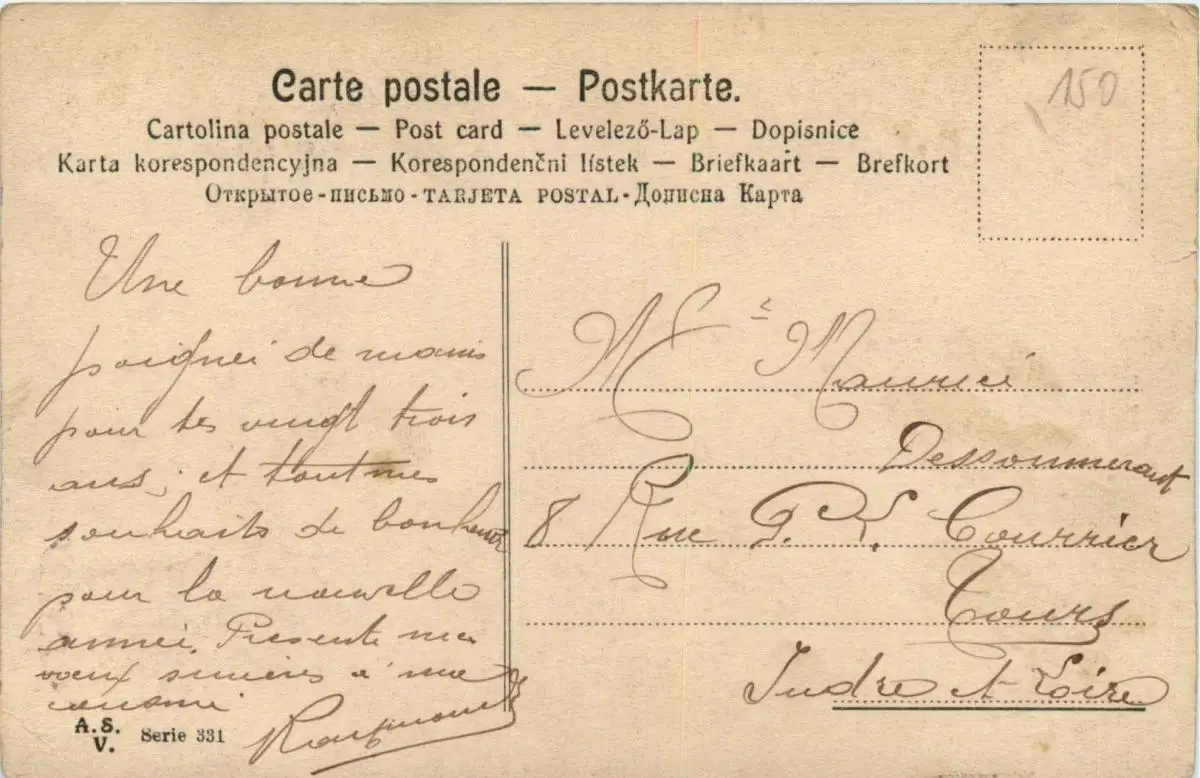 Carte postale — Postkarte.
Cartolina postale — Post card — Levelező-Lap — Dopisnice
Karta korespondencyjna — Korespondenčni lístek — Briefkaart — Brefkort
Открытое-письмо - TARJETA POSTAL - Дописна Карта
150
Une bonne
poignei de mains
pour tes vingt trois
ans; et tout mes
souhaits de bonheur
pour la nouvelle
année. Presente mes
vœux sincères à ma
cousine
Raymond
A. S.
V.
Serie 331
Maurice
Dessoumerant
8 Rue P. L. Courrier
Tours
Indre et Loire